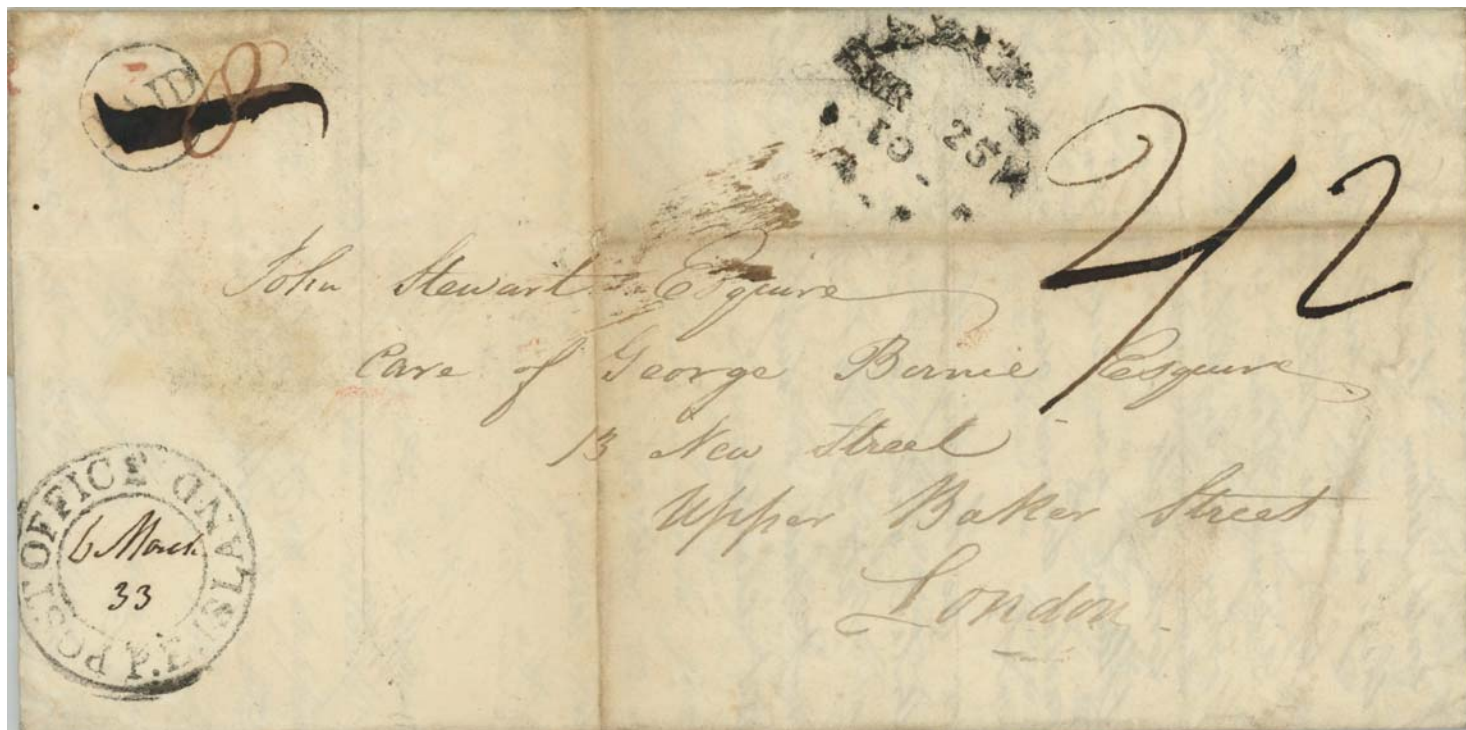 PAID
8
MAR 25
2/2
John Stewart Esquire
Care of George Birnie Esquire
13 New Street
Upper Baker Street
London
POST OFFICE P.E. ISLAND
6 March
33